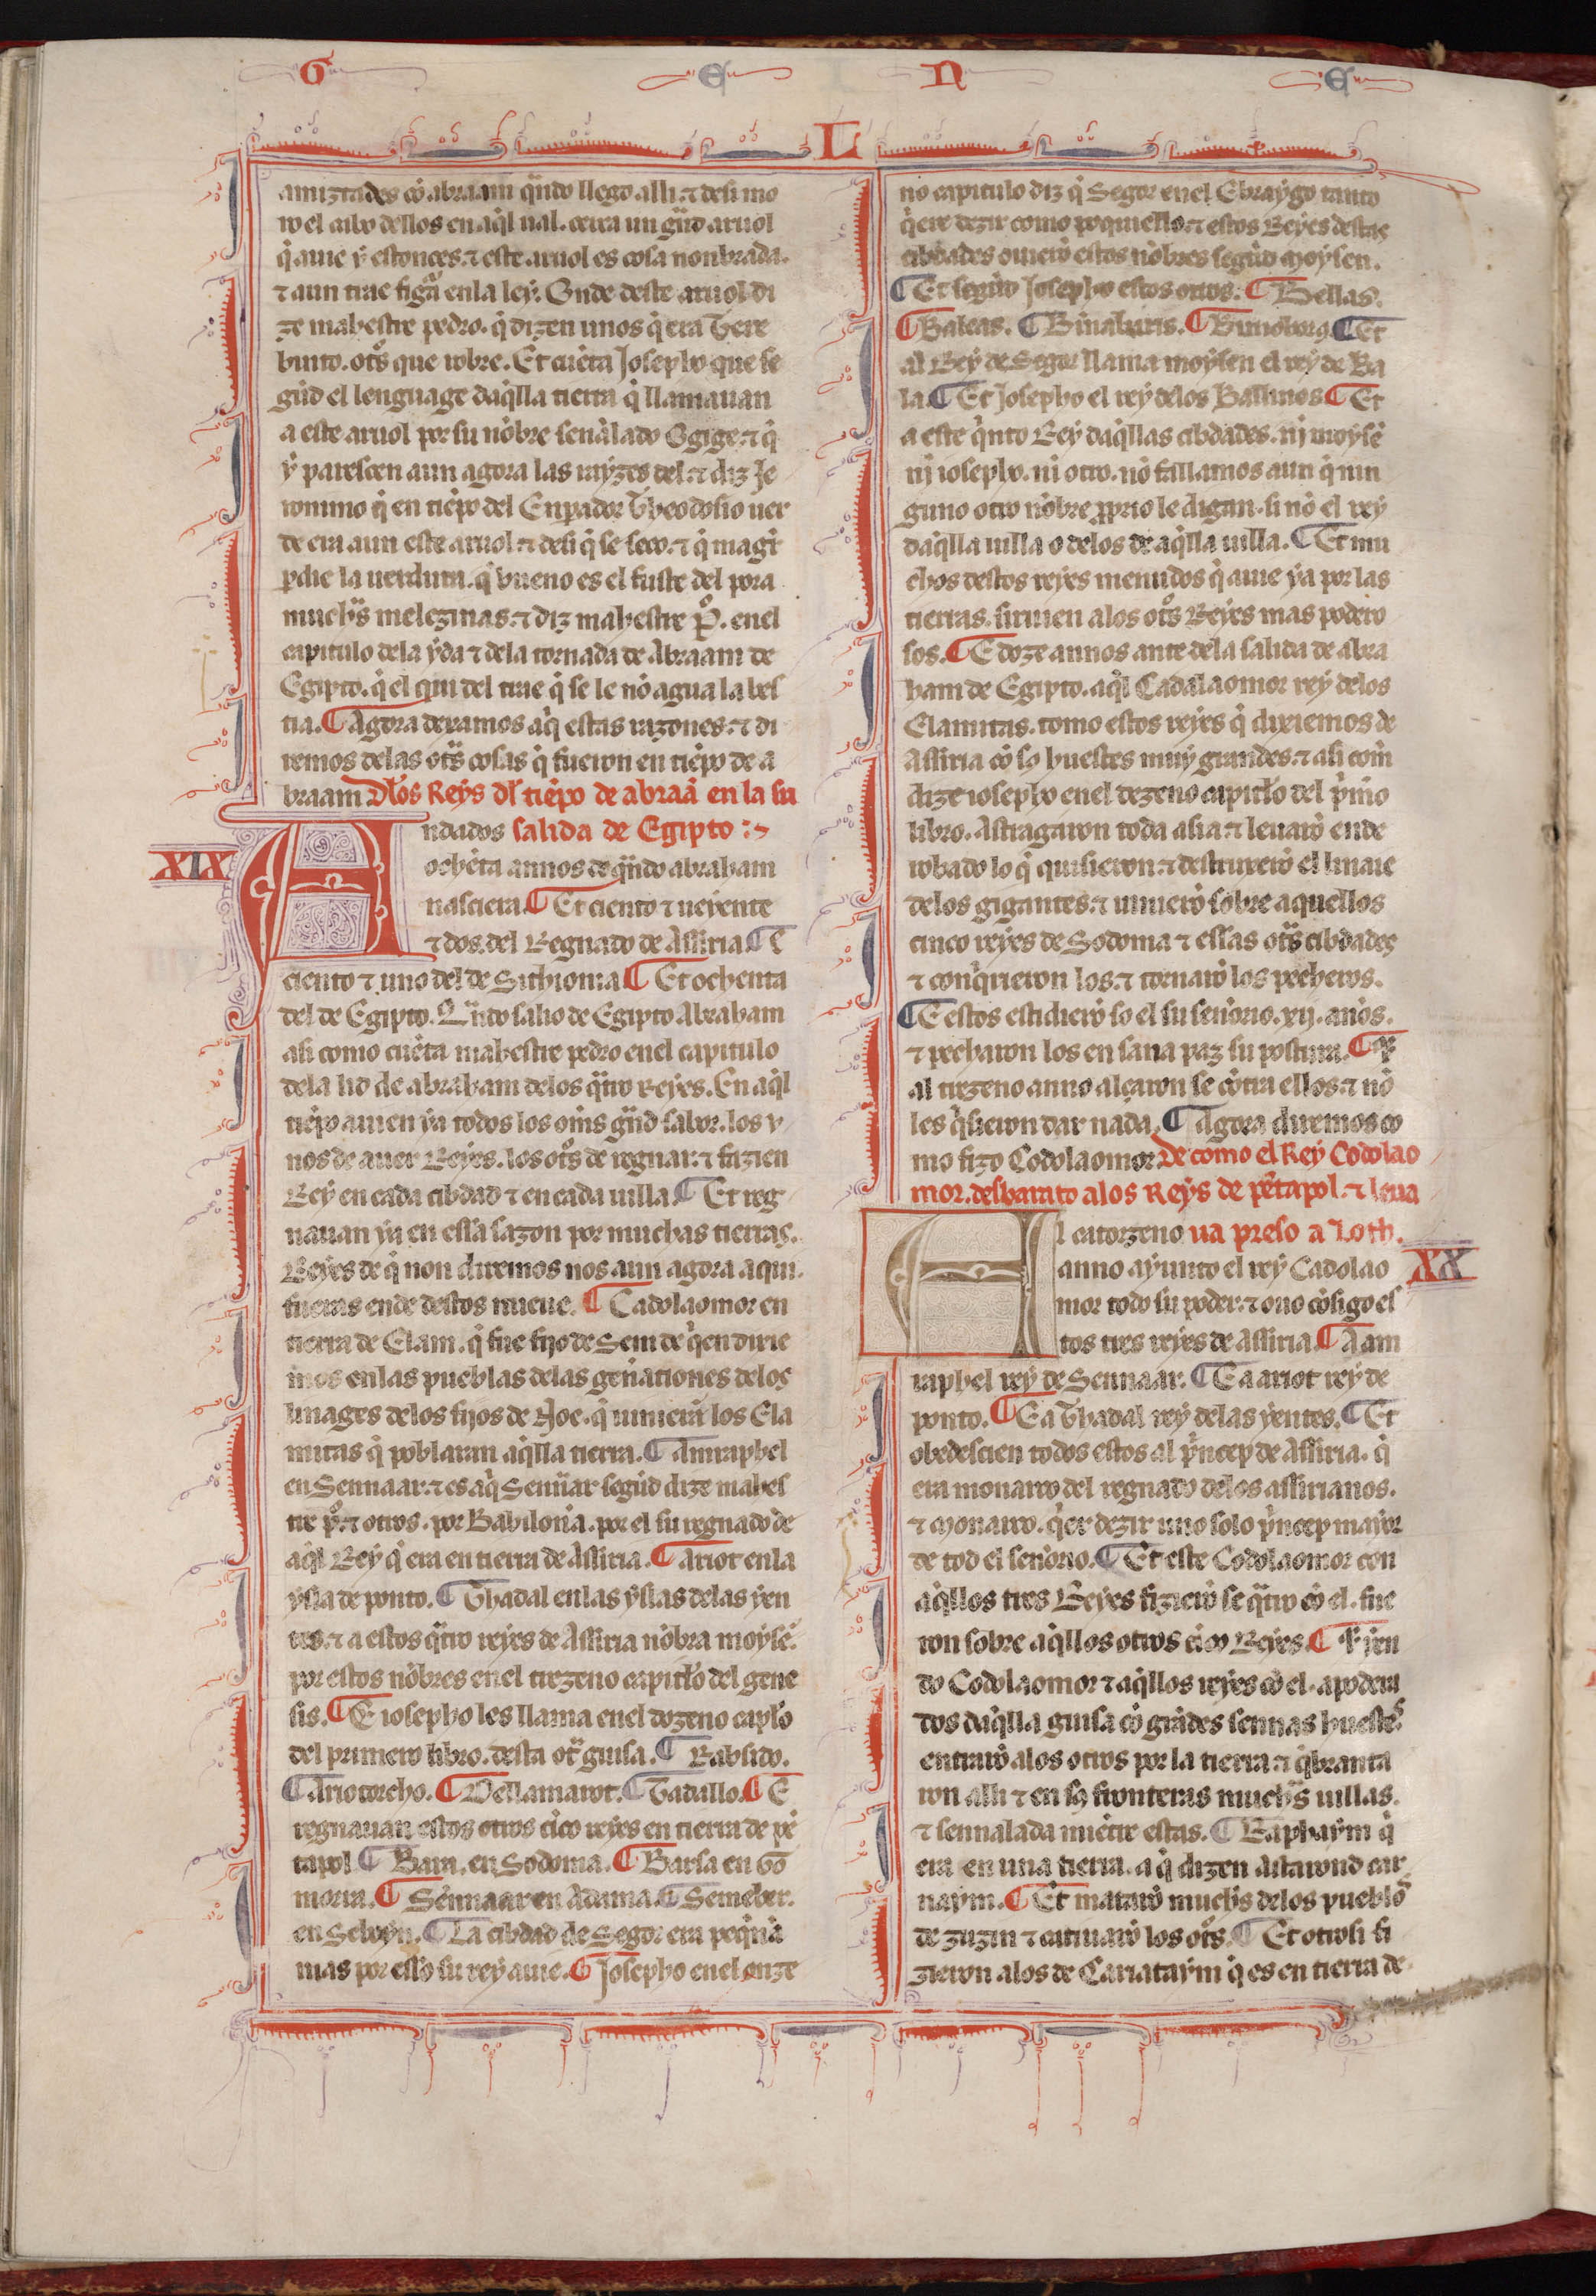 G E N E
L
amiztades cõ abraam qñdo llego alli. ⁊ desi mo
ro el cabo dellos en aq̃l ual. cerca un grãd aruol
q̃ auie y estonces. ⁊ este aruol es cosa nonbrada.
⁊ aun trae figã enla ley. Onde deste aruol di
ze mahestre pedro. q̃ dizen unos q̃ era There
binto. otros que robre. Et cuẽta Josepho que se
gũd el lenguage daq̃lla tierra q̃ llamauan
a este aruol por su nõbre señalado Ogige. ⁊ q̃
y parescen aun agora las rayzes del. ⁊ diz Je
ronimo q̃ en tiẽpo del Enperador Theodosio uer
de era aun este aruol. ⁊ desi q̃ se seco. ⁊ q̃ magr̃
pdie la uerdura. q̃ bueno es el fuste del pora
muchas melezinas. ⁊ diz mahestre P̊. enel
capitulo dela yda ⁊ dela tornada de Abraam de
Egipto. q̃ el qui del trae q̃ se le nõ agua la bes
tia. ¶ Agora dexamos aq̃ estas razones. ⁊ di
remos delas otras cosas q̃ fueron en tiẽpo de a
braam Dlos Reys dl tiẽpo de abraã en la su
ndados salida de Egipto :~
XIX
ochẽta annos de qñdo abraham
nasciera. ¶ Et ciento ⁊ ueyente
⁊ dos. del Regnado de Assiria ¶ E
ciento ⁊ uno del de Sithionia ¶ Et ochenta
del de Egipto. Qñdo salio de Egipto Abraham
asi como cuẽta mahestre pedro enel capitulo
dela lid de abraham delos q̃tro Reyes. En aq̃l
tiẽpo auien ya todos los omñs grãd sabor. los v
nos de auer Reyes. los otros de regnar. ⁊ fazien
Rey en cada cibdad ⁊ en cada uilla. ¶ Et reg
nauan ya en essa sazon por muchas tierras.
Reyes de q̃ non diremos nos aun agora aqui.
fueras ende destos nueue. ¶ Cadolaomor en
tierra de Elam. q̃ fue fijo de Sem de q̃en dixie
mos enlas pueblas delas geñationes delos
linages delos fijos de Noe. q̃ uinierã los Ela
mitas q̃ poblaran aq̃lla tierra. ¶ Amraphel
en Sennaar. ⁊ es aq̃ Sennãar segũd dize mahes
tre p̊. ⁊ otros. por Babilonia. por el su regnado de
aq̃l Rey q̃ era en tierra de Assiria. ¶ Ariot enla
ysla de ponto. ¶ Thadal enlas yslas delas yen
tes. ⁊ a estos q̃tro reyes de Assiria nõbra moysẽ.
por estos nõbres enel trezeno capitlo del gene
sis. ¶ E iosepho les llama enel dozeno caplo
del primero libro. desta otra guisa. ¶ Rabsido.
¶ Ariotorcho. ¶ Dellamarot. ¶ Tadallo. ¶ E
regnauan estos otros cĩco reyes en tierra de pẽ
tapol. ¶ Bara. en Sodoma. ¶ Barsa en Go
morra. ¶ Sẽnnaar en Adama. ¶ Semeber.
en Seboyn. ¶ La cibdad de Segor era peq̃nã
mas por esso su rey auie. G Josepho enel onze
no capitulo diz q̃ Segor enel Ebraygo tanto
q̃ere dezir como poquiello. ⁊ estos Reyes destas
cibdades ouierõ estos nõbres segũd moysen.
¶ Et segũd Josepho estos otros. ¶ Bellas.
¶ Baleas. ¶ Binaburis. ¶ Bimoboro. ¶ Et
al Rey de Segor llama moysen el rey de Ba
la. ¶ Et Josepho el rey delos Ballinos ¶ Et
a este q̃nto Rey daq̃llas cibdades. nj moysẽ
nj iosepho. ni otro. nõ fallamos aun q̃ nin
guno otro nõbre pprio le digan. si nõ el rey
daq̃lla uilla o delos de aq̃lla uilla. ¶ Et mu
chos destos reyes menudos q̃ auie ya por las
tierras. siruien alos otros Reyes mas podero
sos. ¶ E doze annos ante dela salida de abra
ham de Egipto. aq̃l Cadalaomor rey delos
Elamitas. tomo estos reyes q̃ dixiemos de
Assiria cõ so huestes muy grandes. ⁊ asi com̃
dize iosepho enel dezeno capitlo del p̃mo
libro. Astragaron toda asia. ⁊ leuarõ ende
robado lo q̃ quisieron. ⁊ destruxierõ el linaie
delos gigantes. ⁊ uinierõ sobre aquellos
cinco reyes de Sodoma ⁊ essas otras cibdades
⁊ conq̃rieron los. ⁊ tornarõ los pecheros.
¶ E estos estidierõ so el su señorio. xij. años.
⁊ pecharon los en sana paz su postura. ¶ Et
al trezeno anno alçaron se cõtra ellos. ⁊ nõ
les q̃sieron dar nada. ¶ Agora diremos co
mo fizo Codolaomor De como el Rey Codolao
mor. desbarato alos Reys de pẽtapol. ⁊ leua
Al catorzeno ua preso a Loth.
XX
anno ayunto el rey Cadolao
mor todo su poder. ⁊ ouo cõsigo es
tos tres reyes de Assiria. ¶ A am
raphel rey de Sennaar. ¶ E a ariot rey de
ponto. ¶ E a Thadal rey delas yentes. ¶ Et
obedescien todos estos al p̃ncep de Assiria. q̃
era monarco del regnado delos assirianos.
⁊ Monarco. q̃er dezir uno solo p̃ncep mayor
de tod el señorio. ¶ Et este Codolaomor con
aq̃llos tres Reyes fizierõ se q̃tro cõ el. fue
ron sobre aq̃llos otros cĩco Reyes. ¶ Syen
do Codolaomor ⁊ aq̃llos reyes cõ el. apodera
dos daq̃lla guisa cõ grãdes sennas huestes.
entrarõ alos otros por la tierra. ⁊ q̃branta
ron alli ⁊ en so fronteras muchas uillas.
⁊ sennalada miẽtre estas. ¶ Raphaym q̃
era en una tierra. a q̃ dizen Astarond car
naym. ¶ Et matarõ muchos delos pueblos
de zuzin ⁊ catiuarõ los otros. ¶ Et otrosi fi
zieron alos de Cariataym q̃ es en tierra de